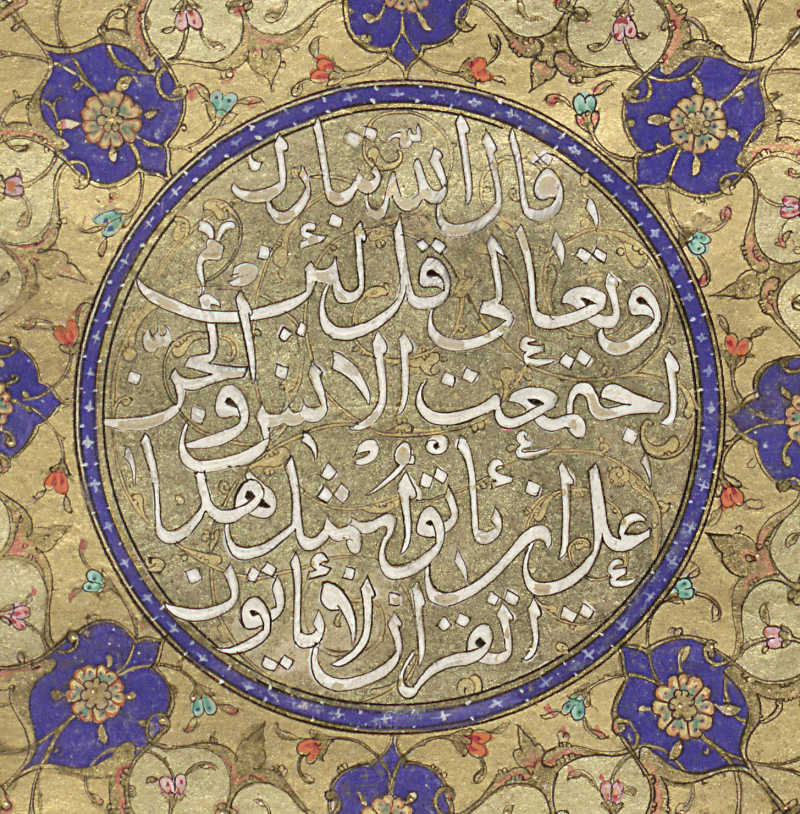 قال الله تبارك
وتعالى قل لئن
اجتمعت الانس والجن
على ان يأتوا بمثل هذا
القرآن لا يأتون